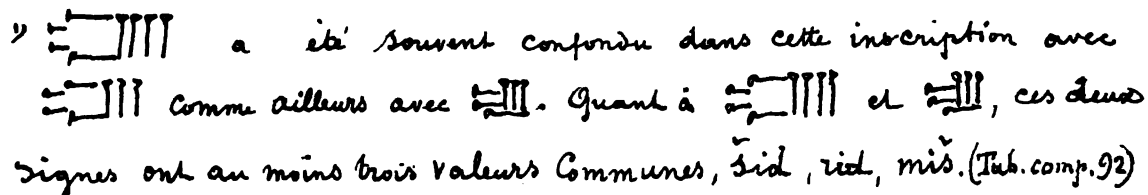 1) a été souvent confondu dans cette inscription avec
comme ailleurs avec . Quant à et , ces deux
signes ont au moins trois valeurs Communes, šid, rid, miš. (Tab. comp. 92)